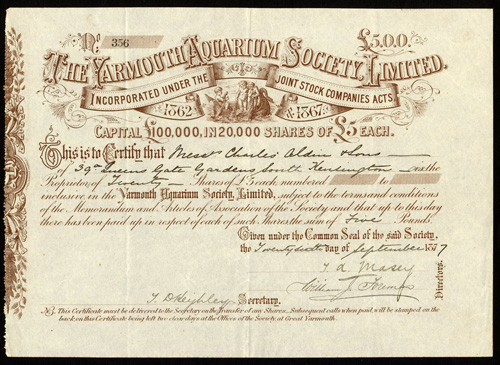 No. 356 £5.0.0.
THE YARMOUTH AQUARIUM SOCIETY, LIMITED.
INCORPORATED UNDER THE JOINT STOCK COMPANIES ACTS
1862 & 1867.
CAPITAL £100,000, IN 20,000 SHARES OF £5 EACH.
This is to Certify that Messrs Charles Aldin & Sons
of 39 Queens Gate Gardens South Kensington are the
Proprietors of Twenty Shares of £5 each numbered to
inclusive in the Yarmouth Aquarium Society, Limited, subject to the terms and conditions
of the Memorandum and Articles of Association of the Society and that up to this day
there has been paid up in respect of each of such Shares the sum of Five Pounds.
Given under the Common Seal of the said Society,
the Twenty sixth day of September 1877
Directors.
Secretary.
N.B. This Certificate must be delivered to the Secretary on the Transfer of any Shares. Subsequent calls when paid, will be stamped on the
back on this Certificate being left two clear days at the Offices of the Society, at Great Yarmouth.